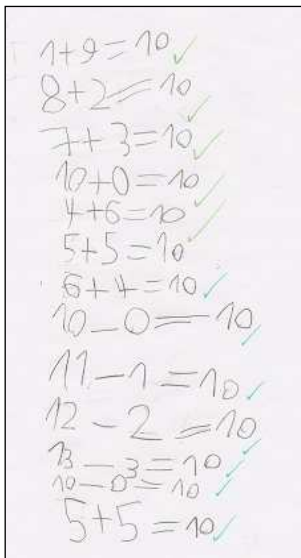 1+9=10
8+2=10
7+3=10
10+0=10
4+6=10
5+5=10
6+4=10
10-0=10
11-1=10
12-2=10
13-3=10
10-0=10
5+5=10